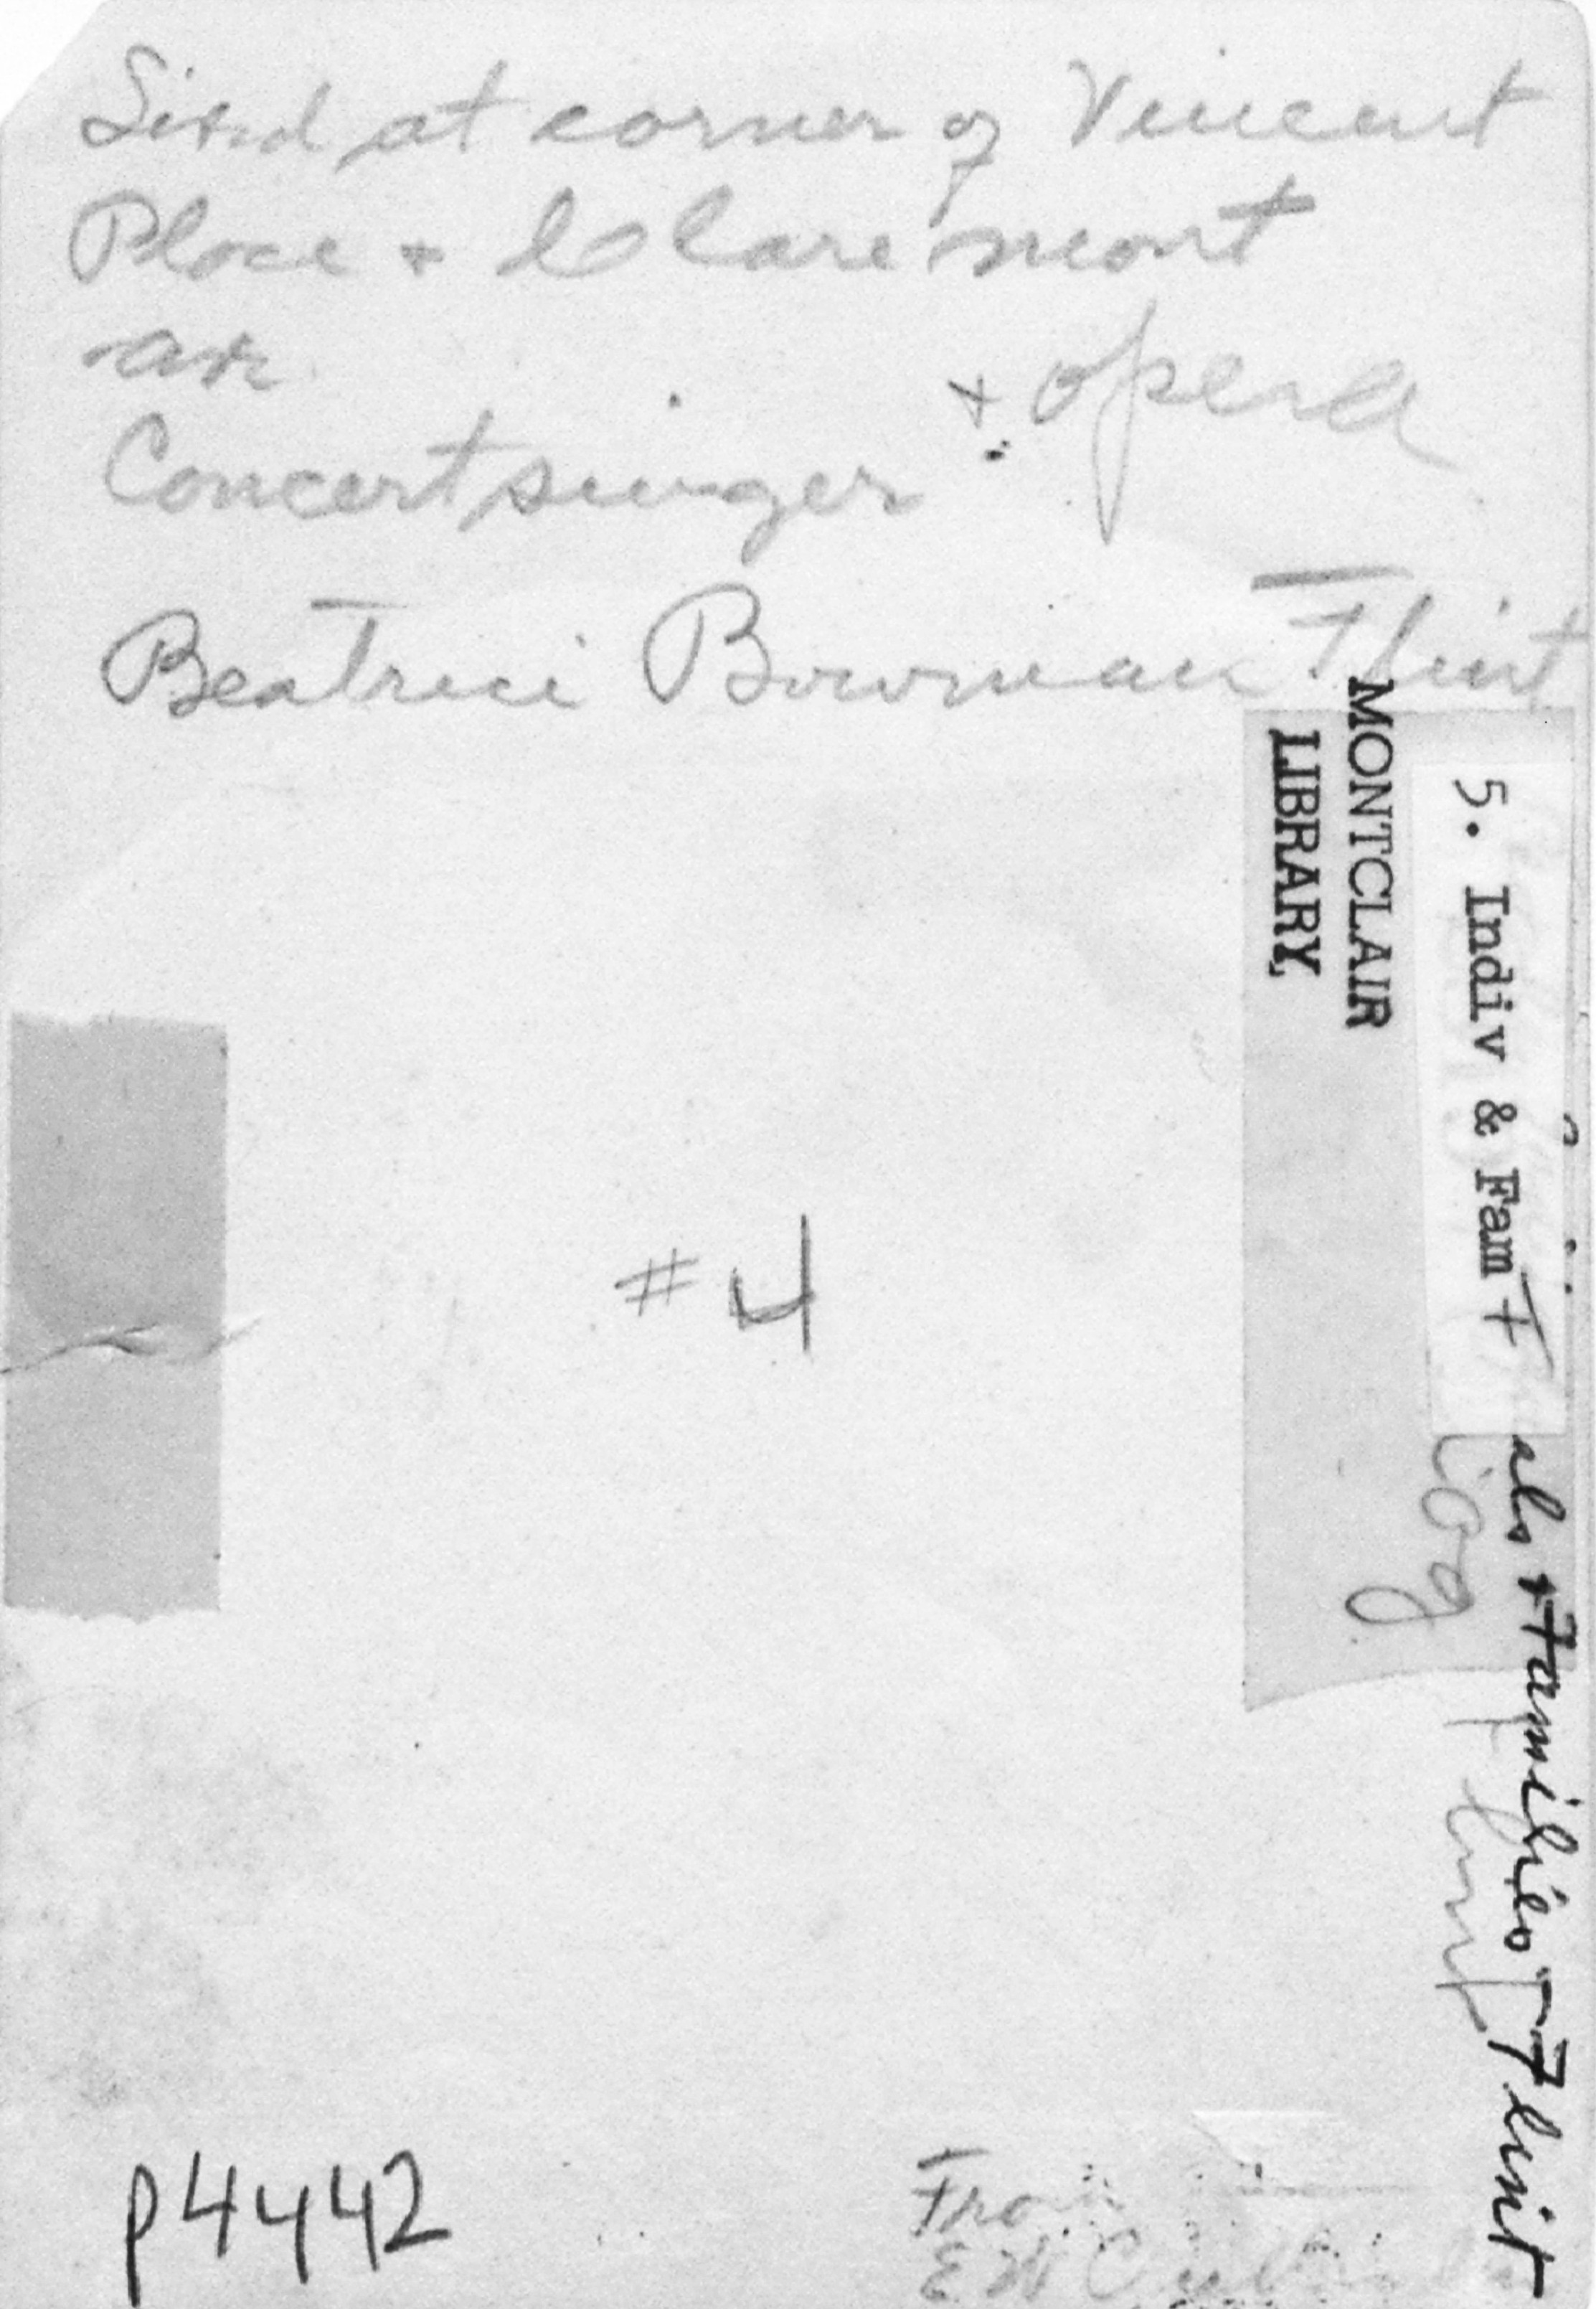 Lived at corner of Vincent
Place + Claremont
av.
+ opera
Concert singer
Beatrice Bowman Flint
MONTCLAIR
LIBRARY
5. Indiv & Fam F
als + Families - Flint
Biog
Flint
#4
p4442
From
E W